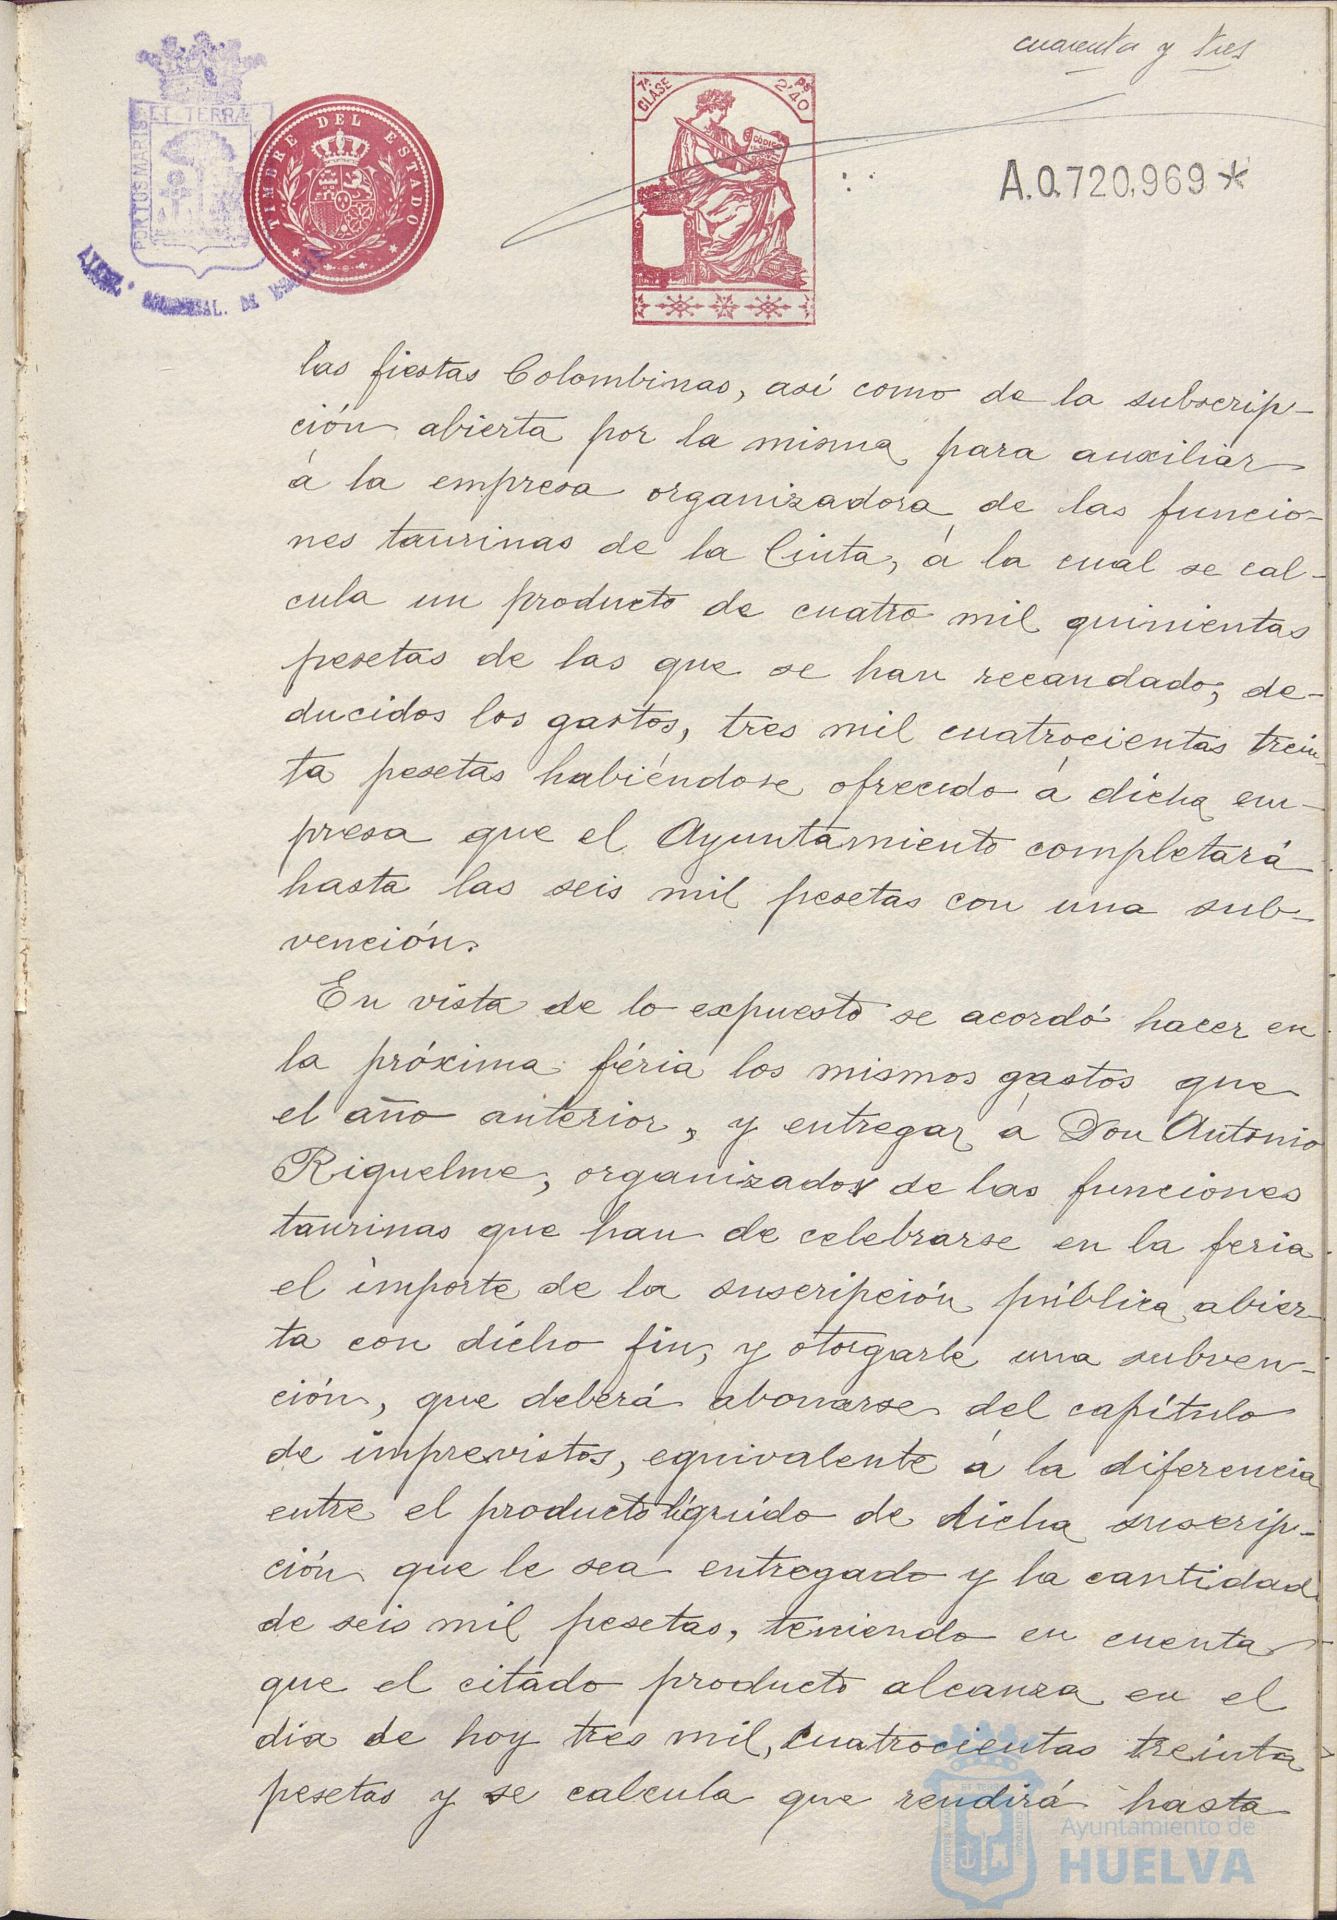 cuarenta y tres
ET TERRÆ
PORTUS MARIS
TIMBRE DEL ESTADO
7ª CLASE
Ps 2'40
CODIGO
A.0.720,969*
las fiestas Colombinas, así como de la subscrip-
ción abierta por la misma para auxiliar
á la empresa organizadora de las funcio-
nes taurinas de la Cinta, á la cual se cal-
cula un producto de cuatro mil quinientas
pesetas de las que se han recaudado, de-
ducidos los gastos, tres mil cuatrocientas trein-
ta pesetas habiéndose ofrecido á dicha em-
presa que el Ayuntamiento completará
hasta las seis mil pesetas con una sub-
vención.
En vista de lo expuesto se acordó hacer en
la próxima féria los mismos gastos que
el año anterior, y entregar á Don Antonio
Riquelme, organizador de las funciones
taurinas que han de celebrarse en la feria
el importe de la suscripción pública abier-
ta con dicho fin, y otorgarle una subven-
ción, que deberá abonarse del capítulo
de imprevistos, equivalente á la diferencia
entre el producto líquido de dicha suscrip-
ción que le sea entregado y la cantidad
de seis mil pesetas, teniendo en cuenta
que el citado producto alcanza en el
dia de hoy tres mil, cuatrocientas treinta
pesetas y se calcula que rendirá hasta
Ayuntamiento de
HUELVA